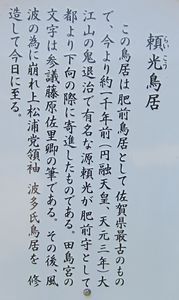 頼光鳥居
らいこう
この鳥居は肥前鳥居として佐賀県最古のもの
で、今より約一千年前（円融天皇、天元三年）大
江山の鬼退治で有名な源頼光が肥前守として
都より下向の際に寄進したものである。田島宮の
文字は参議藤原佐里卿の筆である。その後、風
波の為に崩れ上松浦党領袖 波多氏鳥居を 修
造して今日に至る。